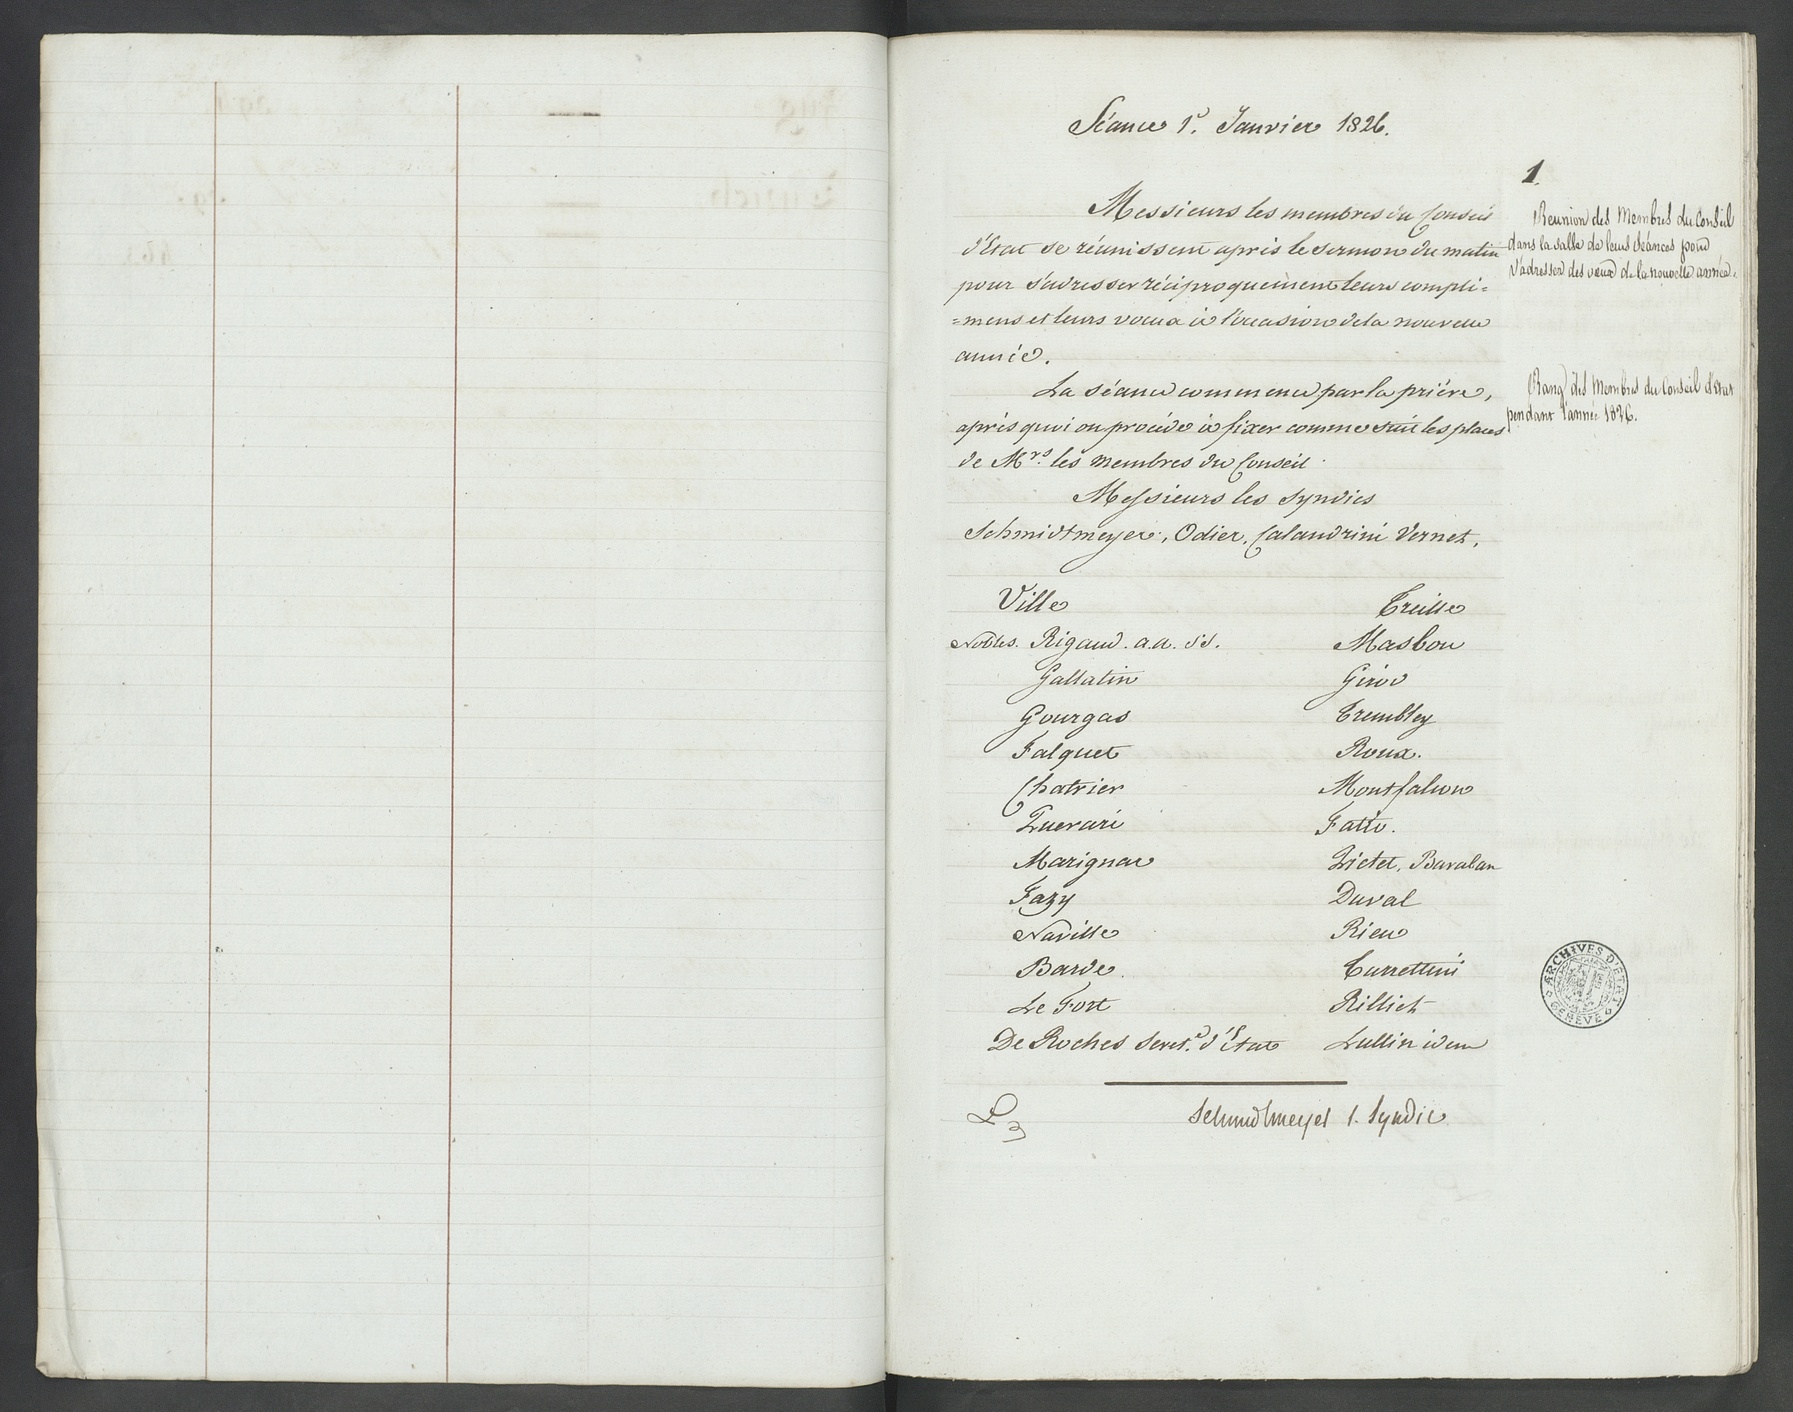 Séance 1.r Janvier 1826.
1.
Messieurs les membres du Conseil
d'Etat se réunissent après le sermon du matin
pour s'adresser réciproquement leurs compli=
=mens et leurs voeux à l'occasion de la nouvelle
année.
Réunion des Membres du Conseil
dans la salle de leurs Séances pour
s'adresser des voeux de la nouvelle année.
La séance commence par la prière,
après quoi on procède à fixer comme suit les places
de Mrs. les membres du Conseil.
Rang des Membres du Conseil d'Etat
pendant l'année 1826.
Messieurs les Syndics
Schmidtmeyer, Odier, Calandrini Vernet.
Ville Treille
Nobles. Rigaud. a.a. Masbou
Gallatin Girod
Gourgas Trembley
Falquet Roux.
Chatrier Montfalcon
Fatio.
Marignac Pictet, Baraban
Fazy Duval
Naville Rieu
Barde. Turrettini
Le Fort Rilliet
De Roches Secret.e d'Etat Lullin idem
Schmidtmeyer 1. Syndic
ARCHIVES D'ETAT
GENEVE